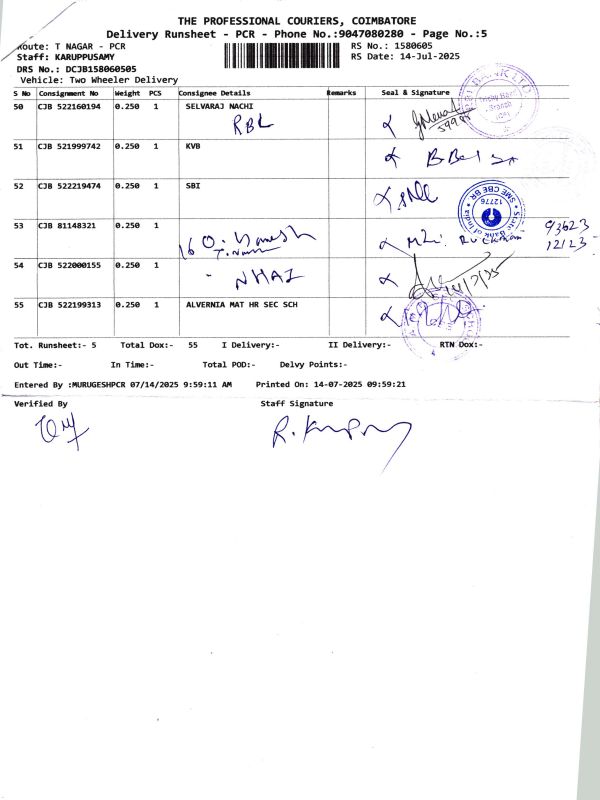 THE PROFESSIONAL COURIERS, COIMBATORE
Delivery Runsheet - PCR - Phone No.:9047080280 - Page No.:5
Route: T NAGAR - PCR RS No.: 1580605
Staff: KARUPPUSAMY RS Date: 14-Jul-2025
DRS No.: DCJB158060505
Vehicle: Two Wheeler Delivery
S No Consignment No Weight PCS Consignee Details Remarks Seal & Signature
50 CJB 522160194 0.250 1 SELVARAJ NACHI
RBL
51 CJB 521999742 0.250 1 KVB
52 CJB 522219474 0.250 1 SBI
State Bank of India SME CBE BR 12776
53 CJB 81148321 0.250 1
93623
12123
54 CJB 522000155 0.250 1
NHAI
14/7/25
55 CJB 522199313 0.250 1 ALVERNIA MAT HR SEC SCH
Tot. Runsheet:- 5 Total Dox:- 55 I Delivery:- II Delivery:- RTN Dox:-
Out Time:- In Time:- Total POD:- Delvy Points:-
Entered By :MURUGESHPCR 07/14/2025 9:59:11 AM Printed On: 14-07-2025 09:59:21
Verified By Staff Signature